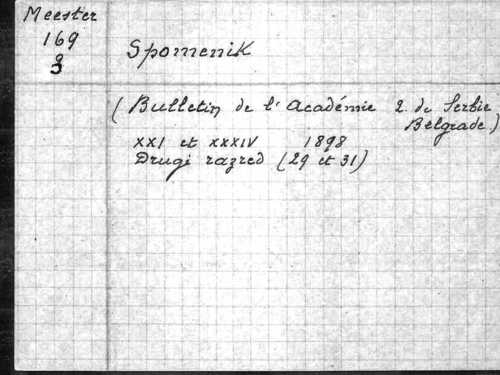 Meester
169
3
Spomenik
(Bulletin de l'Académie R. de Serbie
Belgrade)
XXI et XXXIV 1898
Drugi razred (29 et 31)